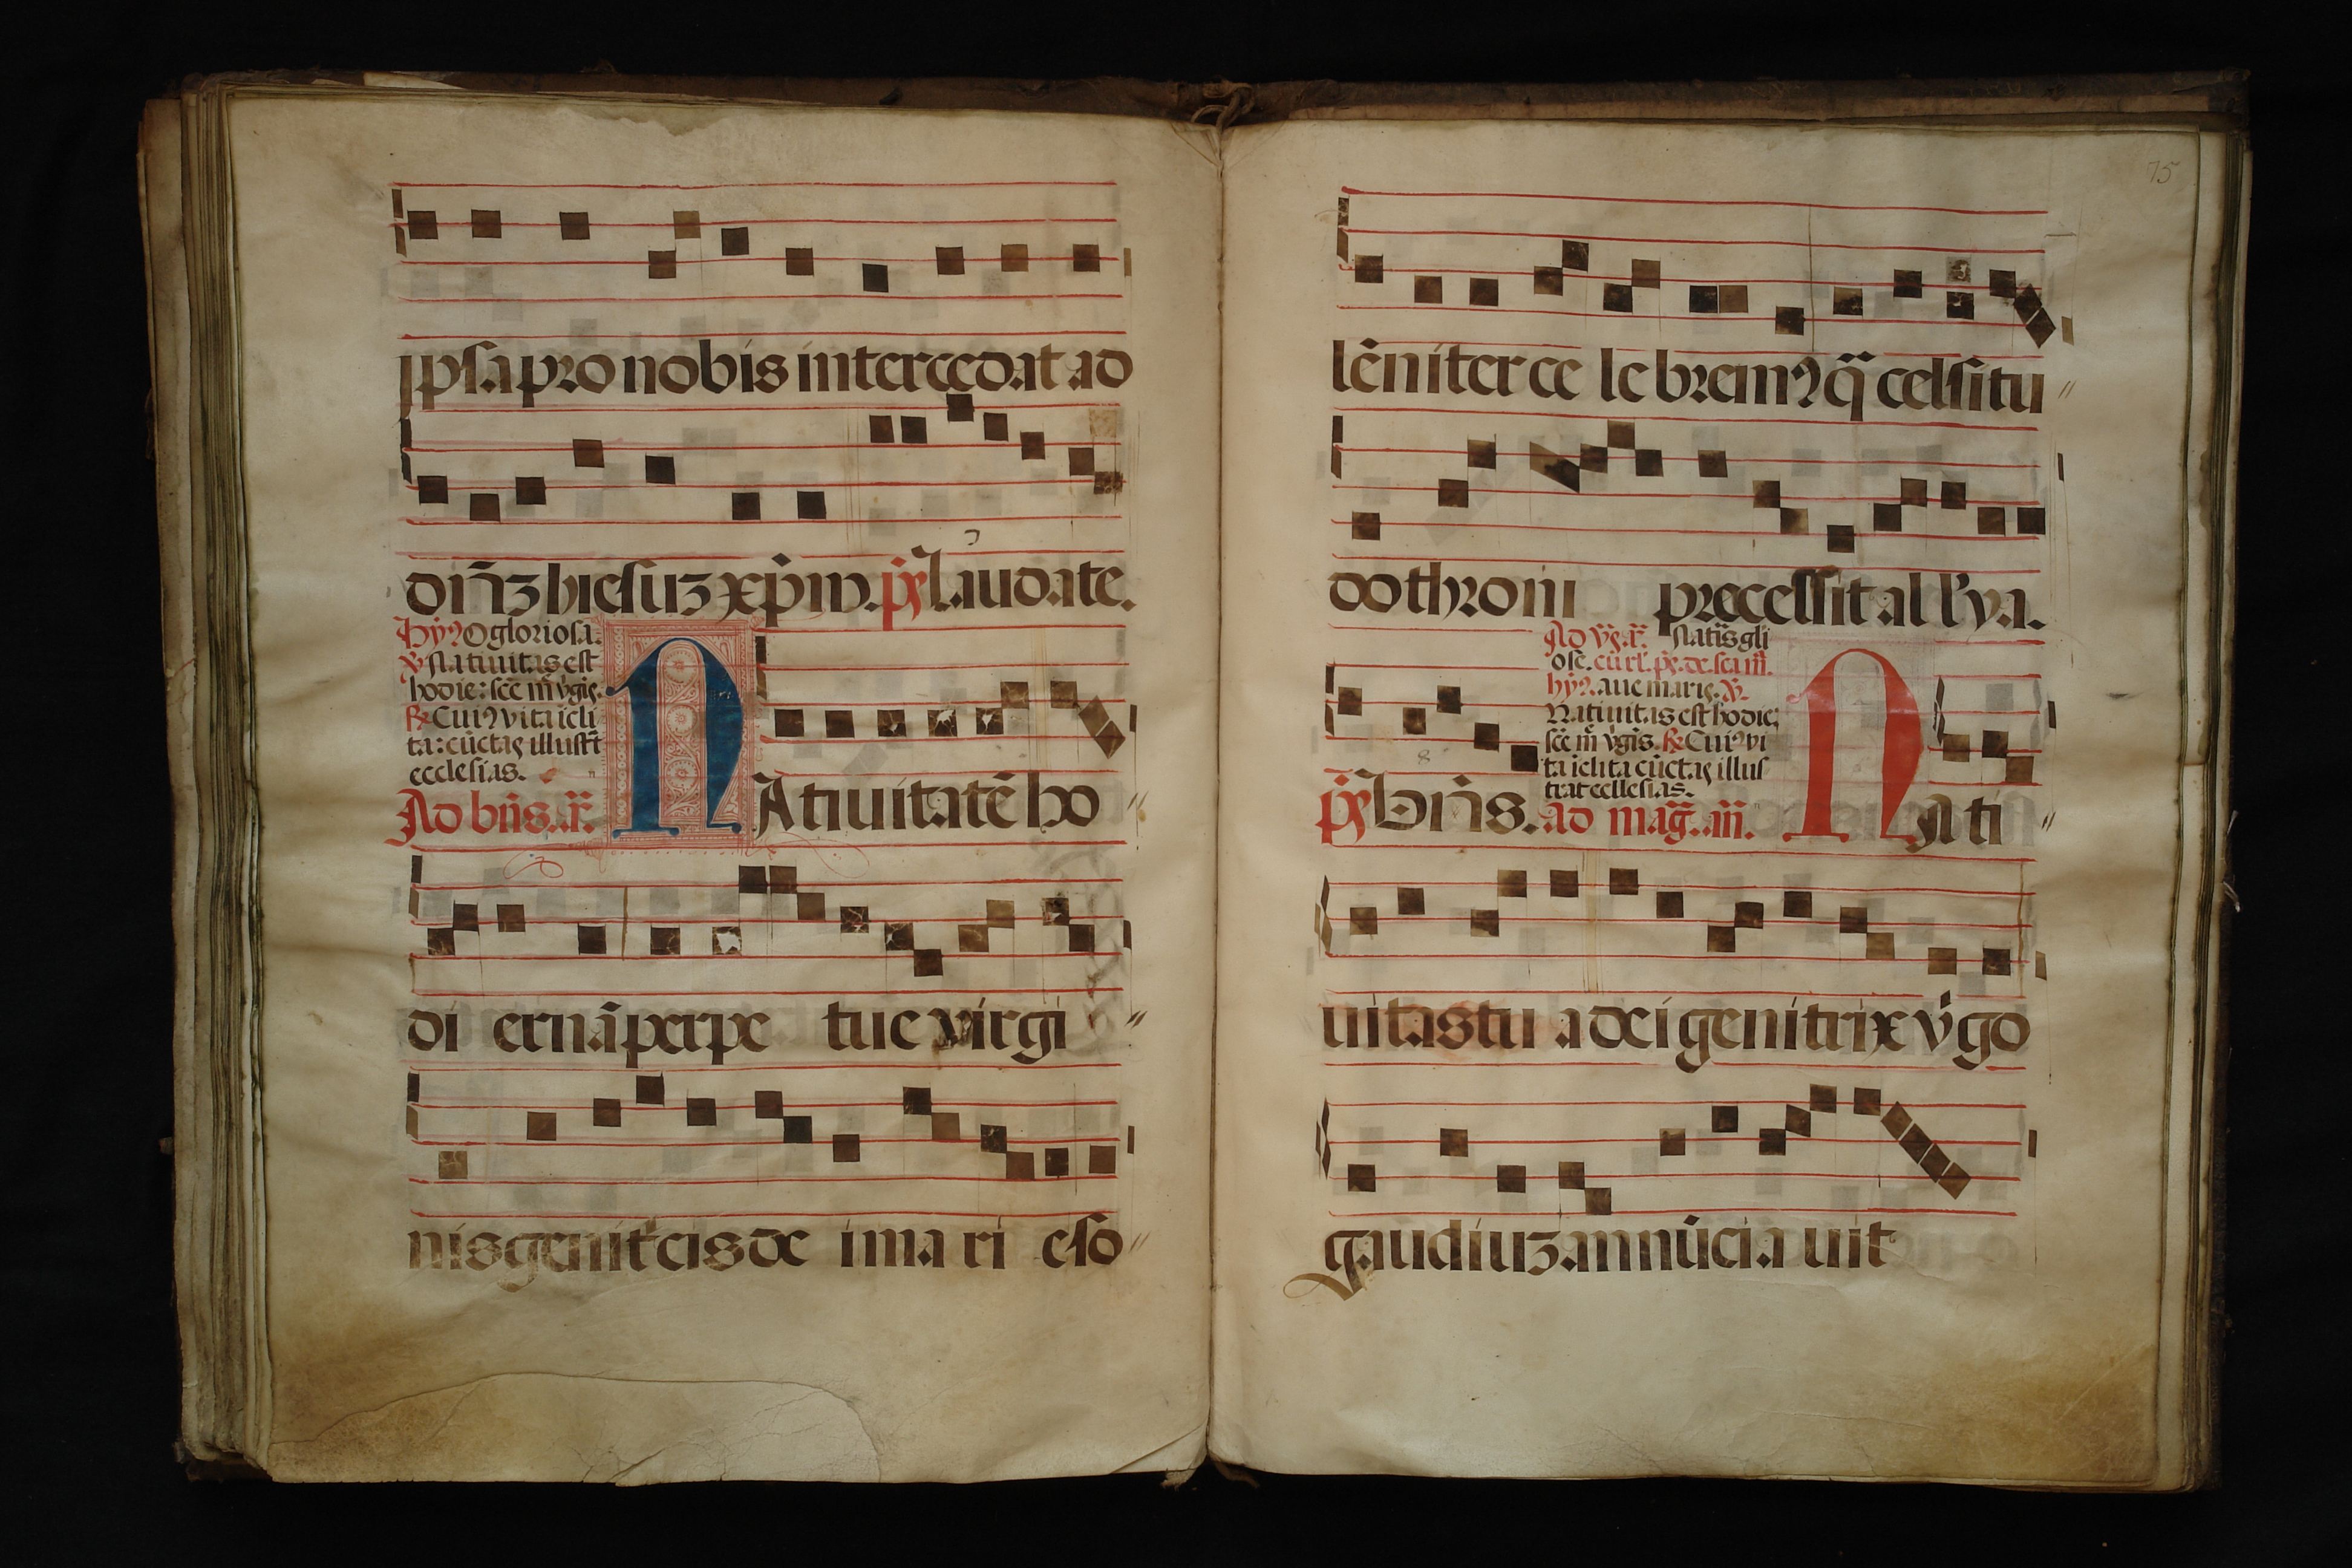 ipsa pro nobis intercedat ad
dñ̄ꝫ hiesuꝫ xp̄m. p̄s Laudate.
Hỹꝰ O gloriosa.
℣ Natiuitas est
hodie: sc̄e m̄ v̄gis.
℞ Cuiꝰ vita icli
ta: cūctas illustr̄t
ecclesias.
Ad bn̄s. añ.
NAtiuitatē ho
di ernā perpe tue virgi
nis genitͥcis de i ma ri e so
75
lēniter ce le bremꝰ q̄ celsitu
do throni precessit al lʼya.
Ad v̄s. añ. Natīs gli
ose. cū rl̄. p̄s. de sca m̄.
hỹꝰ. aue maris. ℣.
Natiuitas est hodie:
sc̄e m̄ v̄gis. ℞ Cuiꝰ vi
ta iclita cūctas illus
trat ecclesias.
p̄s Bn̄s. ad mag̃. añ. NAti
uitas tu a dei genitrix v̄go
gaudiuꝫ annūci a uit